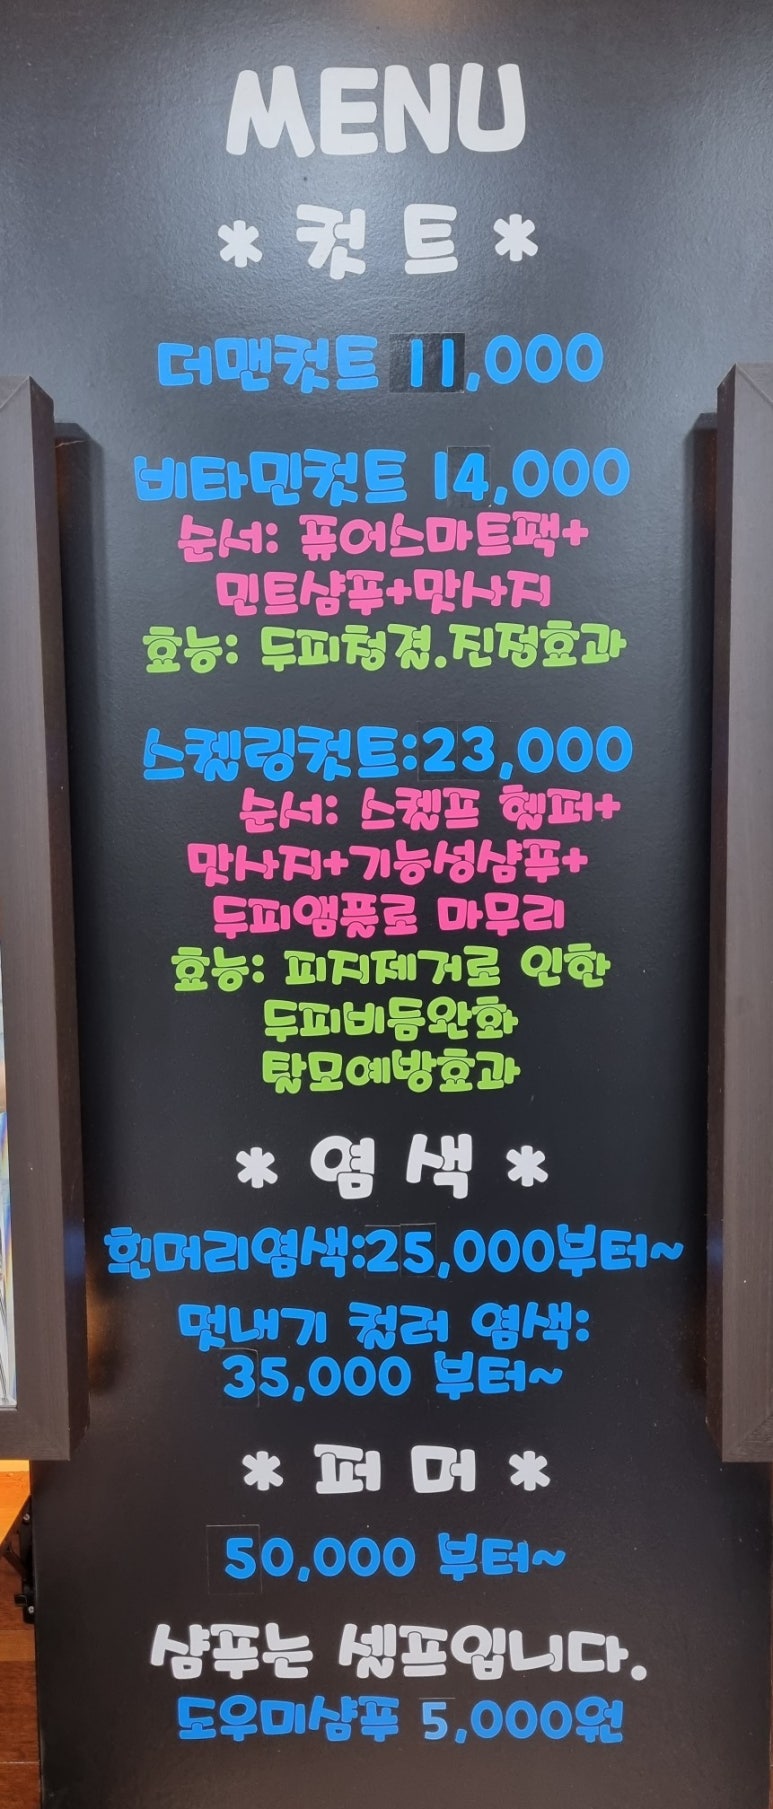 MENU
* 컷 트 *
더맨컷트 11,000
비타민컷트 14,000
순서: 퓨어스마트팩+
민트샴푸+맛사지
효능: 두피청결.진정효과
스켈링컷트:23,000
순서: 스켈프 헬퍼+
맛사지+기능성샴푸+
두피앰플로 마무리
효능: 피지제거로 인한
두피비듬완화
탈모예방효과
* 염 색 *
흰머리염색:25,000부터~
멋내기 컬러 염색:
35,000 부터~
* 퍼 머 *
50,000 부터~
샴푸는 셀프입니다.
도우미샴푸 5,000원